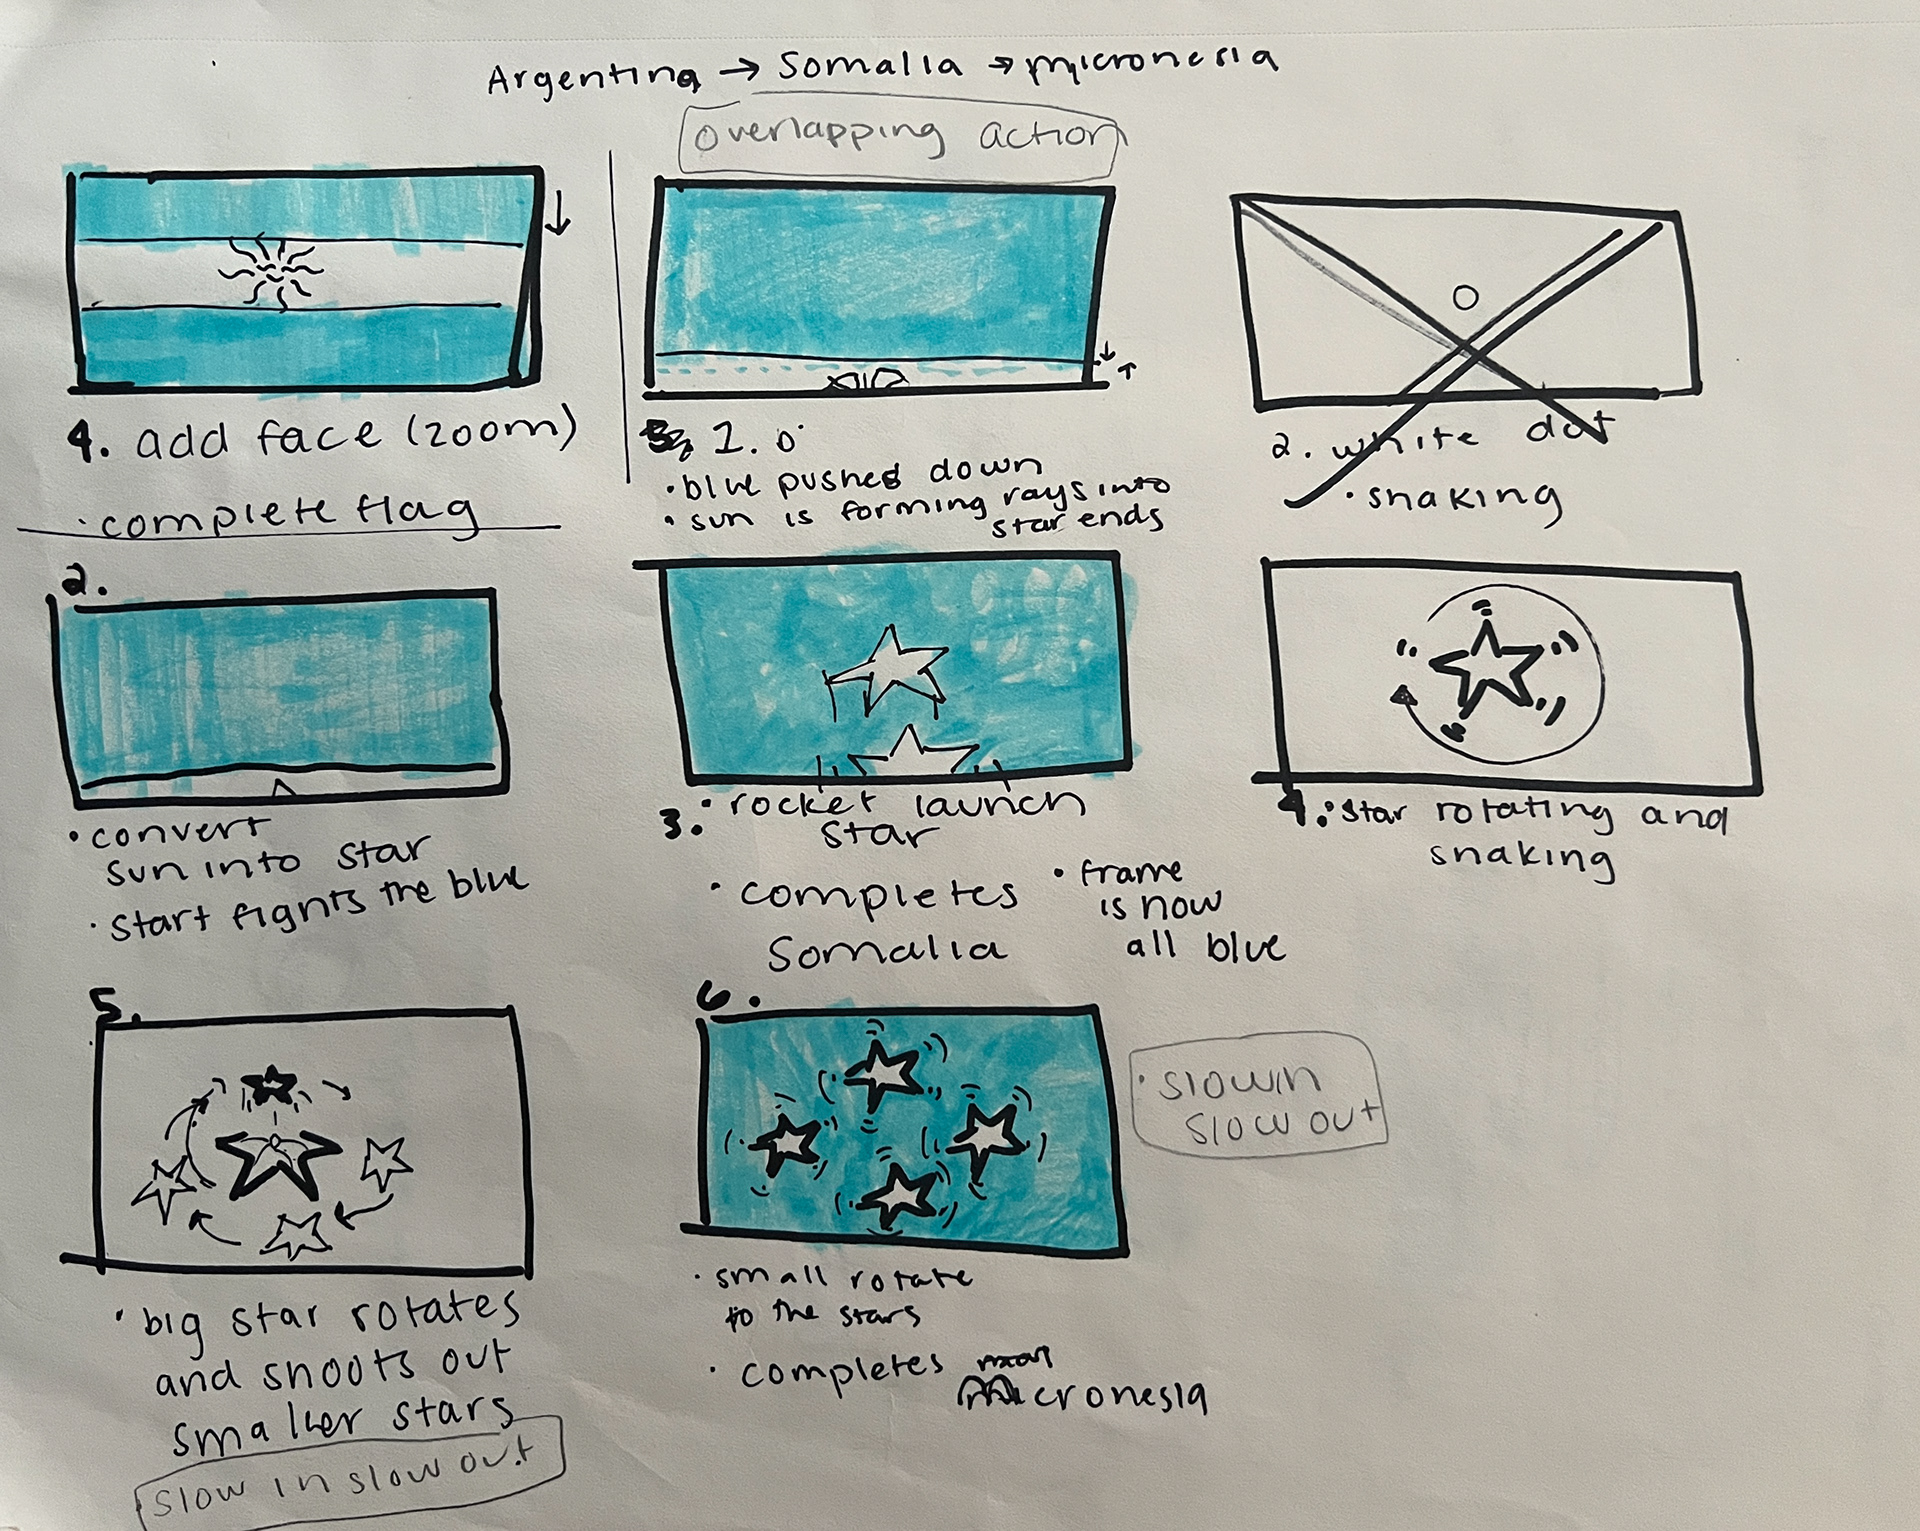 Argentina → Somalia → micronesia
overlapping action
4. add face (zoom)
· complete flag
1. o
· blue pushes down
· sun is forming rays into
star ends
2. white dot
· shaking
2.
· convert
sun into star
· start fights the blue
3. · rocket launch
star
· completes
Somalia
· frame
is now
all blue
4. · star rotating and
shaking
5.
· big star rotates
and shoots out
smaller stars
slow in slow out
6.
· slow in
slow out
· small rotate
to the stars
· completes
Micronesia